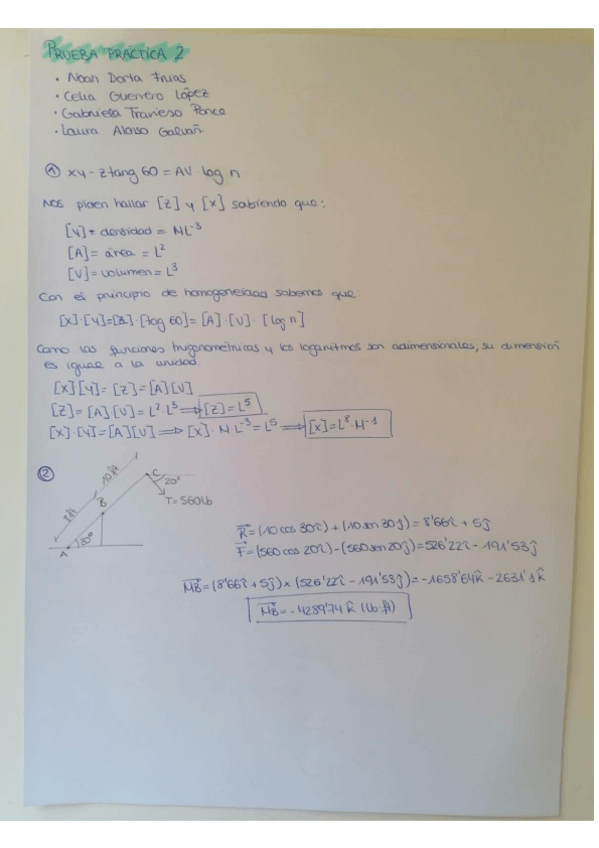 PRUEBA PRÁCTICA 2
• Noah Dorta Frias
• Celia Guerrero López
• Gabriela Travieso Ponce
• Laura Alonso Galván
① xy - z tang 60 = AV · log n
Nos piden hallar [z] y [x] sabiendo que:
[y] = densidad = ML⁻³
[A] = área = L²
[V] = volumen = L³
Con el principio de homogeneidad sabemos que
[x]·[y]=[z]·[tag 60]=[A]·[V]·[log n]
Como las funciones trigonometricas y los logaritmos son adimensionales, su dimensión
es igual a la unidad.
[x][y]=[z]=[A][V]
[z]=[A][V]=L²·L³ ⟹ [z]=L⁵
[x]·[y]=[A][V] ⟹ [x]·M·L⁻³=L⁵ ⟹ [x]=L⁸·M⁻¹
②
8ft
10ft
C
20°
T=560lb
B
30°
A
R=(10 cos 30î)+(10 sen 30ĵ)=8'66î+5ĵ
F=(560 cos 20î)-(560 sen 20ĵ)=526'22î-191'53ĵ
MB=(8'66î+5ĵ)×(526'22î-191'53ĵ)=-1658'64k̂-2631'1k̂
MB=-4289'74 k̂ (lb·ft)